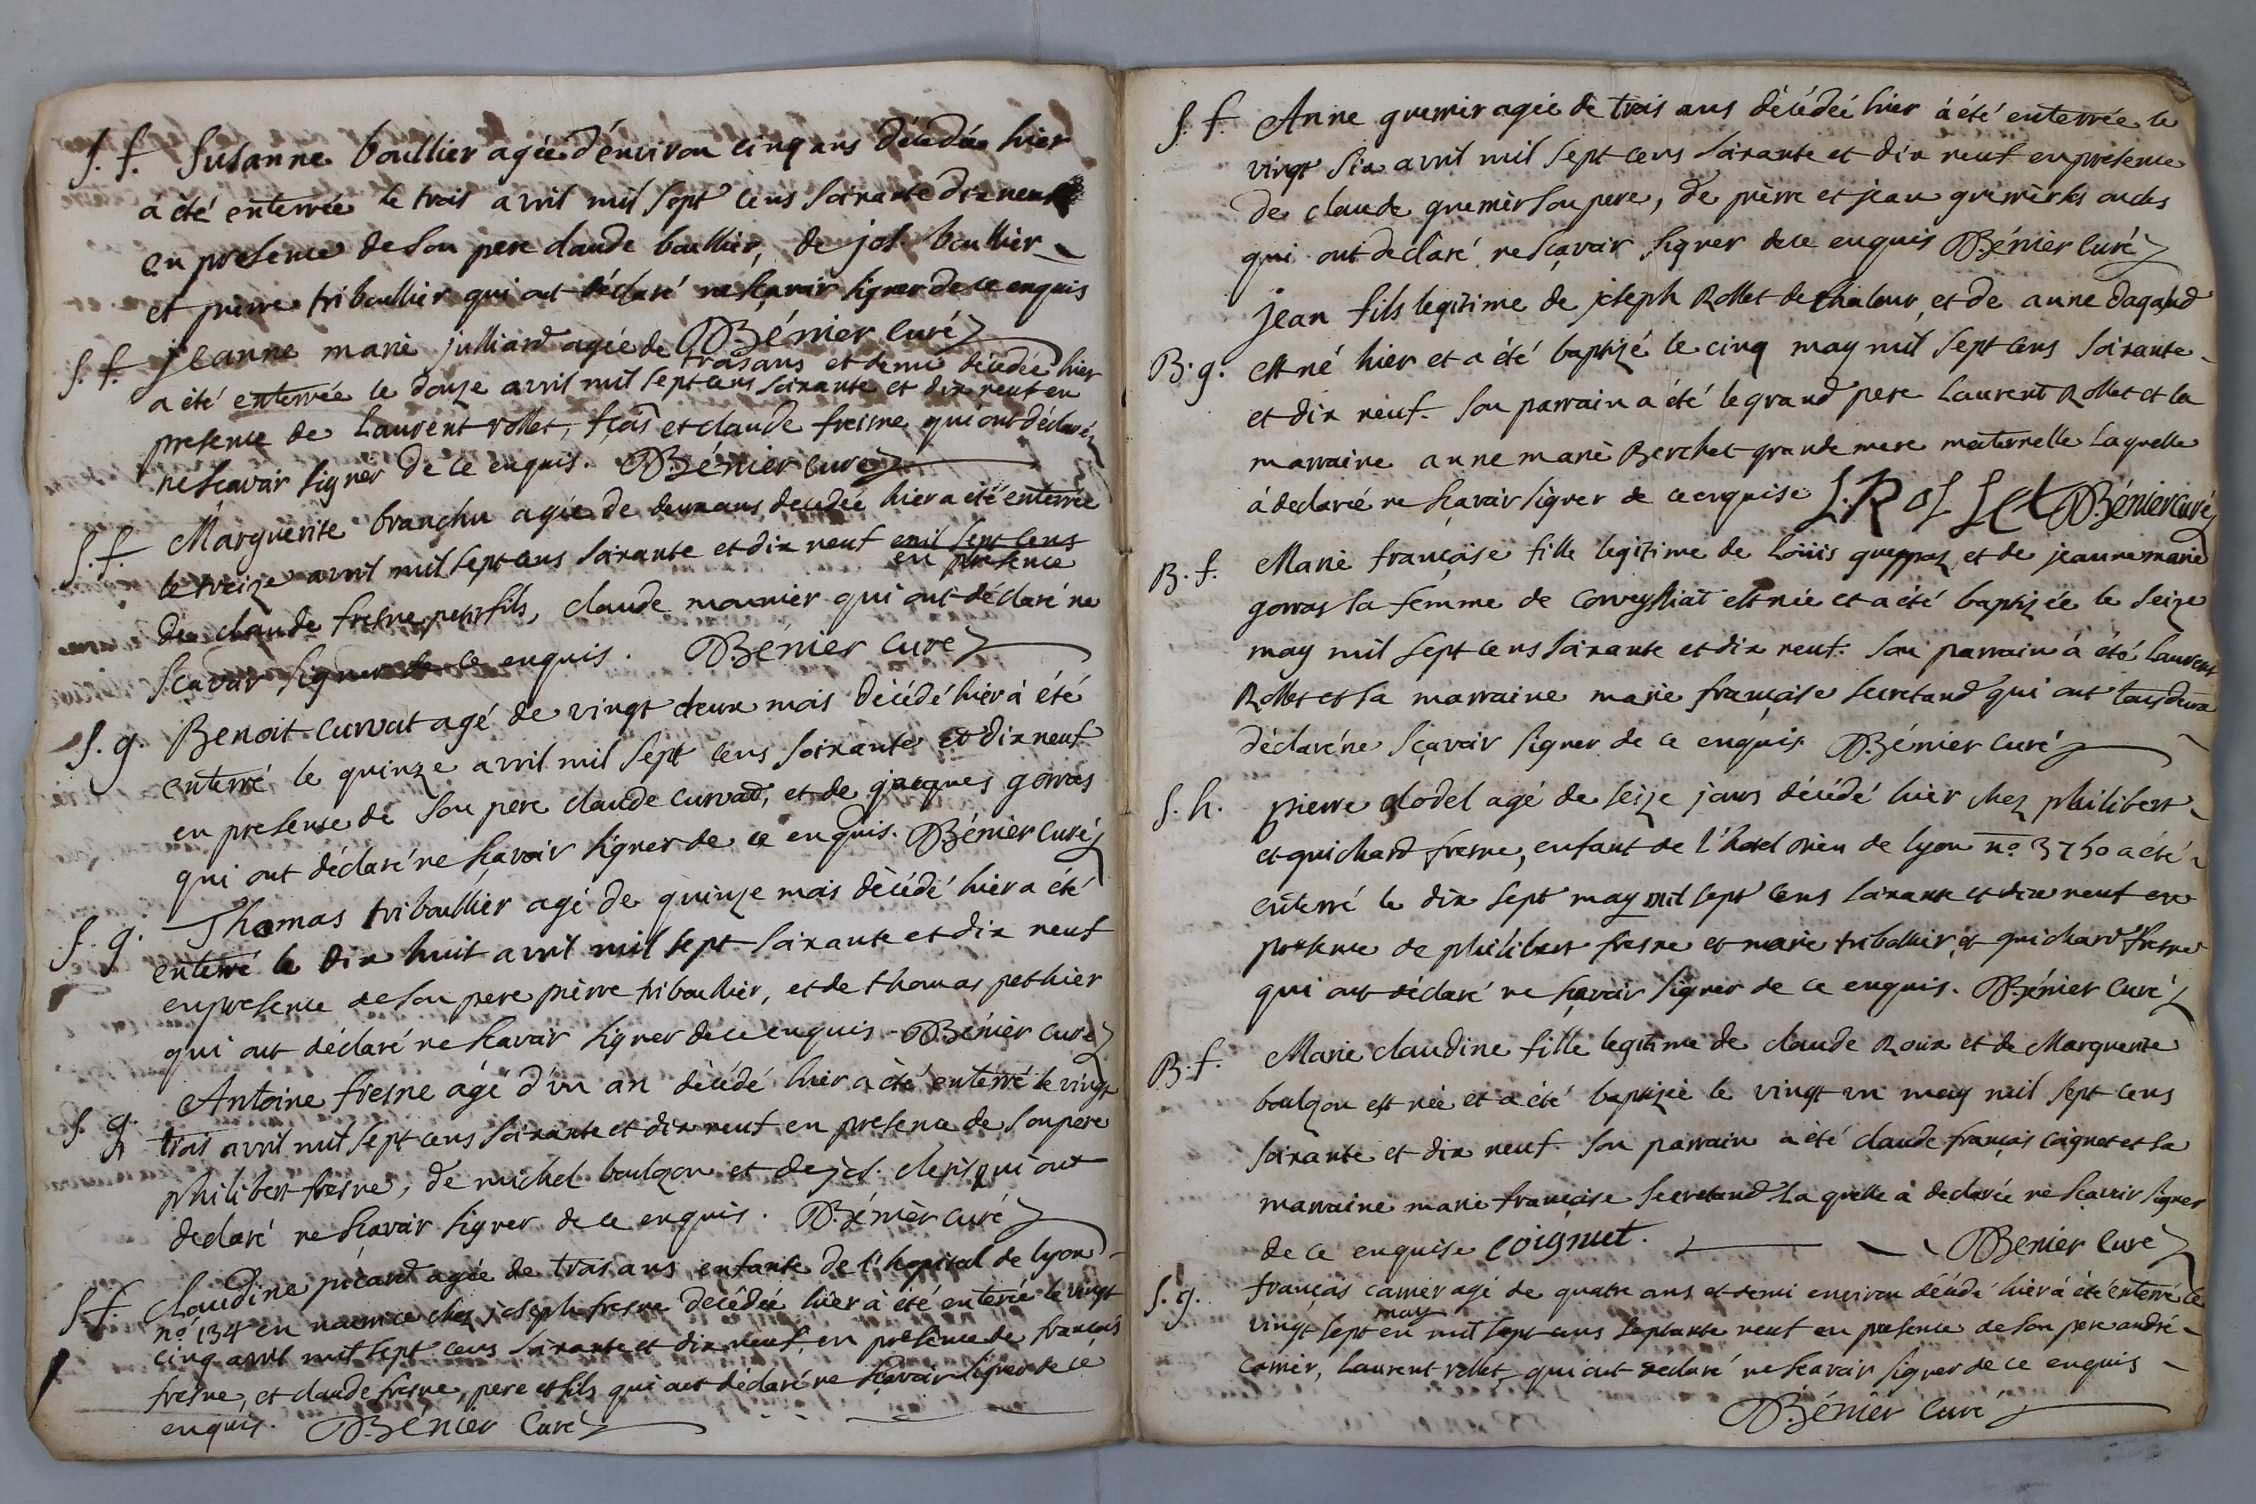 S. f. Susanne boullier agée d'environ cinq ans décedée hier
a été enterrée le trois avril mil sept cens soixante dix neuf
en presence de son pere claude boullier, de jos. boullier
et pierre triboullier qui ont déclaré ne sçavoir signer de ce enquis
Bénier curé
S. f. jeanne marie julliard agée de trois ans et demi décedée hier
a été enterrée le douze avril mil sept cens soixante et dix neuf en
presence de Laurent rollet, fcois et claude fresne qui ont déclaré
ne sçavoir signer de ce enquis. Bénier curé
S. f. Marguerite branchu agée de deux ans decedée hier a été enterrée
le treize avril mil sept cens soixante et dix neuf mil sept cens
en presence
de claude fresne petit fils, claude mounier qui ont déclaré ne
scavoir signer de ce enquis. Bénier curé
S. g. Benoit curvat agé de vingt deux mois décédé hier à été
enterré le quinze avril mil sept cens soixante et dix neuf
en presence de son pere claude curvat, et de jacques gorras
qui ont déclaré ne sçavoir signer de ce enquis. Bénier curé
S. g. Thomas triboullier agé de quinze mois décédé hier a été
enterré le dix huit avril mil sept soixante et dix neuf
en presence de son pere pierre triboullier, et de thomas pethier
qui ont déclaré ne scavoir signer de ce enquis. Bénier curé
S. g. Antoine fresne agé d'un an décédé hier a été enterré le vingt
trois avril mil sept cens soixante et dix neuf en presence de son pere
philibert fresne, de michel boulzon et de jos. clerc qui ont
declaré ne sçavoir signer de ce enquis. Bénier curé
S. f. Claudine picard agée de trois ans enfante de l'hopital de lyon
no. 134 en nourrice chez joseph fresne decédée hier à été enterrée le vingt
cinq avril mil sept cens soixante et dix neuf, en présence de françois
fresne, et claude fresne, pere et fils qui ont declaré ne sçavoir signer de ce
enquis. Bénier Curé
S. f. Anne gremir agée de trois ans décédée hier à été enterrée le
vingt six avril mil sept cens soixante et dix neuf en presence
de claude gremir son pere, de pierre et jean gremir ses oncles
qui ont declaré ne sçavoir signer de ce enquis Bénier Curé
jean fils legitime de joseph Rollet de chaleur, et de anne dagand
B. g. est né hier et a été baptizé le cinq may mil sept cens soixante
et dix neuf. Son parrain a été le grand pere Laurent Rollet et la
marraine anne marie Berchet grande mere maternelle laquelle
à declarée ne scavoir signer de ce enquise L. Rollet Bénier curé
B. f. Marie françoise fille legitime de Loüis greppoz et de jeanne marie
gorras sa femme de Conveyssiat est née et a été baptizée le seize
may mil sept cens soixante et dix neuf. Son parrain à été Laurent
Rollet et sa marraine marie françoise secretand qui ont tous deux
déclaré ne sçavoir signer de ce enquis Bénier curé
S. h. pierre clodel agé de seize jours décédé hier chez philibert
et guichard fresne, enfant de l'hotel dieu de lyon no. 3750 a été
enterré le dix sept may mil sept cens soixante et dix neuf en
presence de philibert fresne et marie triboullier, et guichard fresne
qui ont déclaré ne sçavoir signer de ce enquis. Bénier Curé
B. f. Marie claudine fille legitime de claude Roux et de Marguerite
boulzon est née et a été baptizée le vingt un may mil sept cens
soixante et dix neuf. Son parrain a été claude françois coignet et sa
marraine marie françoise secretand la quelle à declarée ne scavoir signer
de ce enquise coignet. Bénier curé
S. g. françois carrier agé de quatre ans et demi environ décédé hier à été enterré le
vingt sept en may mil sept cens septante neuf en presence de son pere andré
carrier, Laurent rollet, qui ont déclaré ne scavoir signer de ce enquis
Bénier Curé